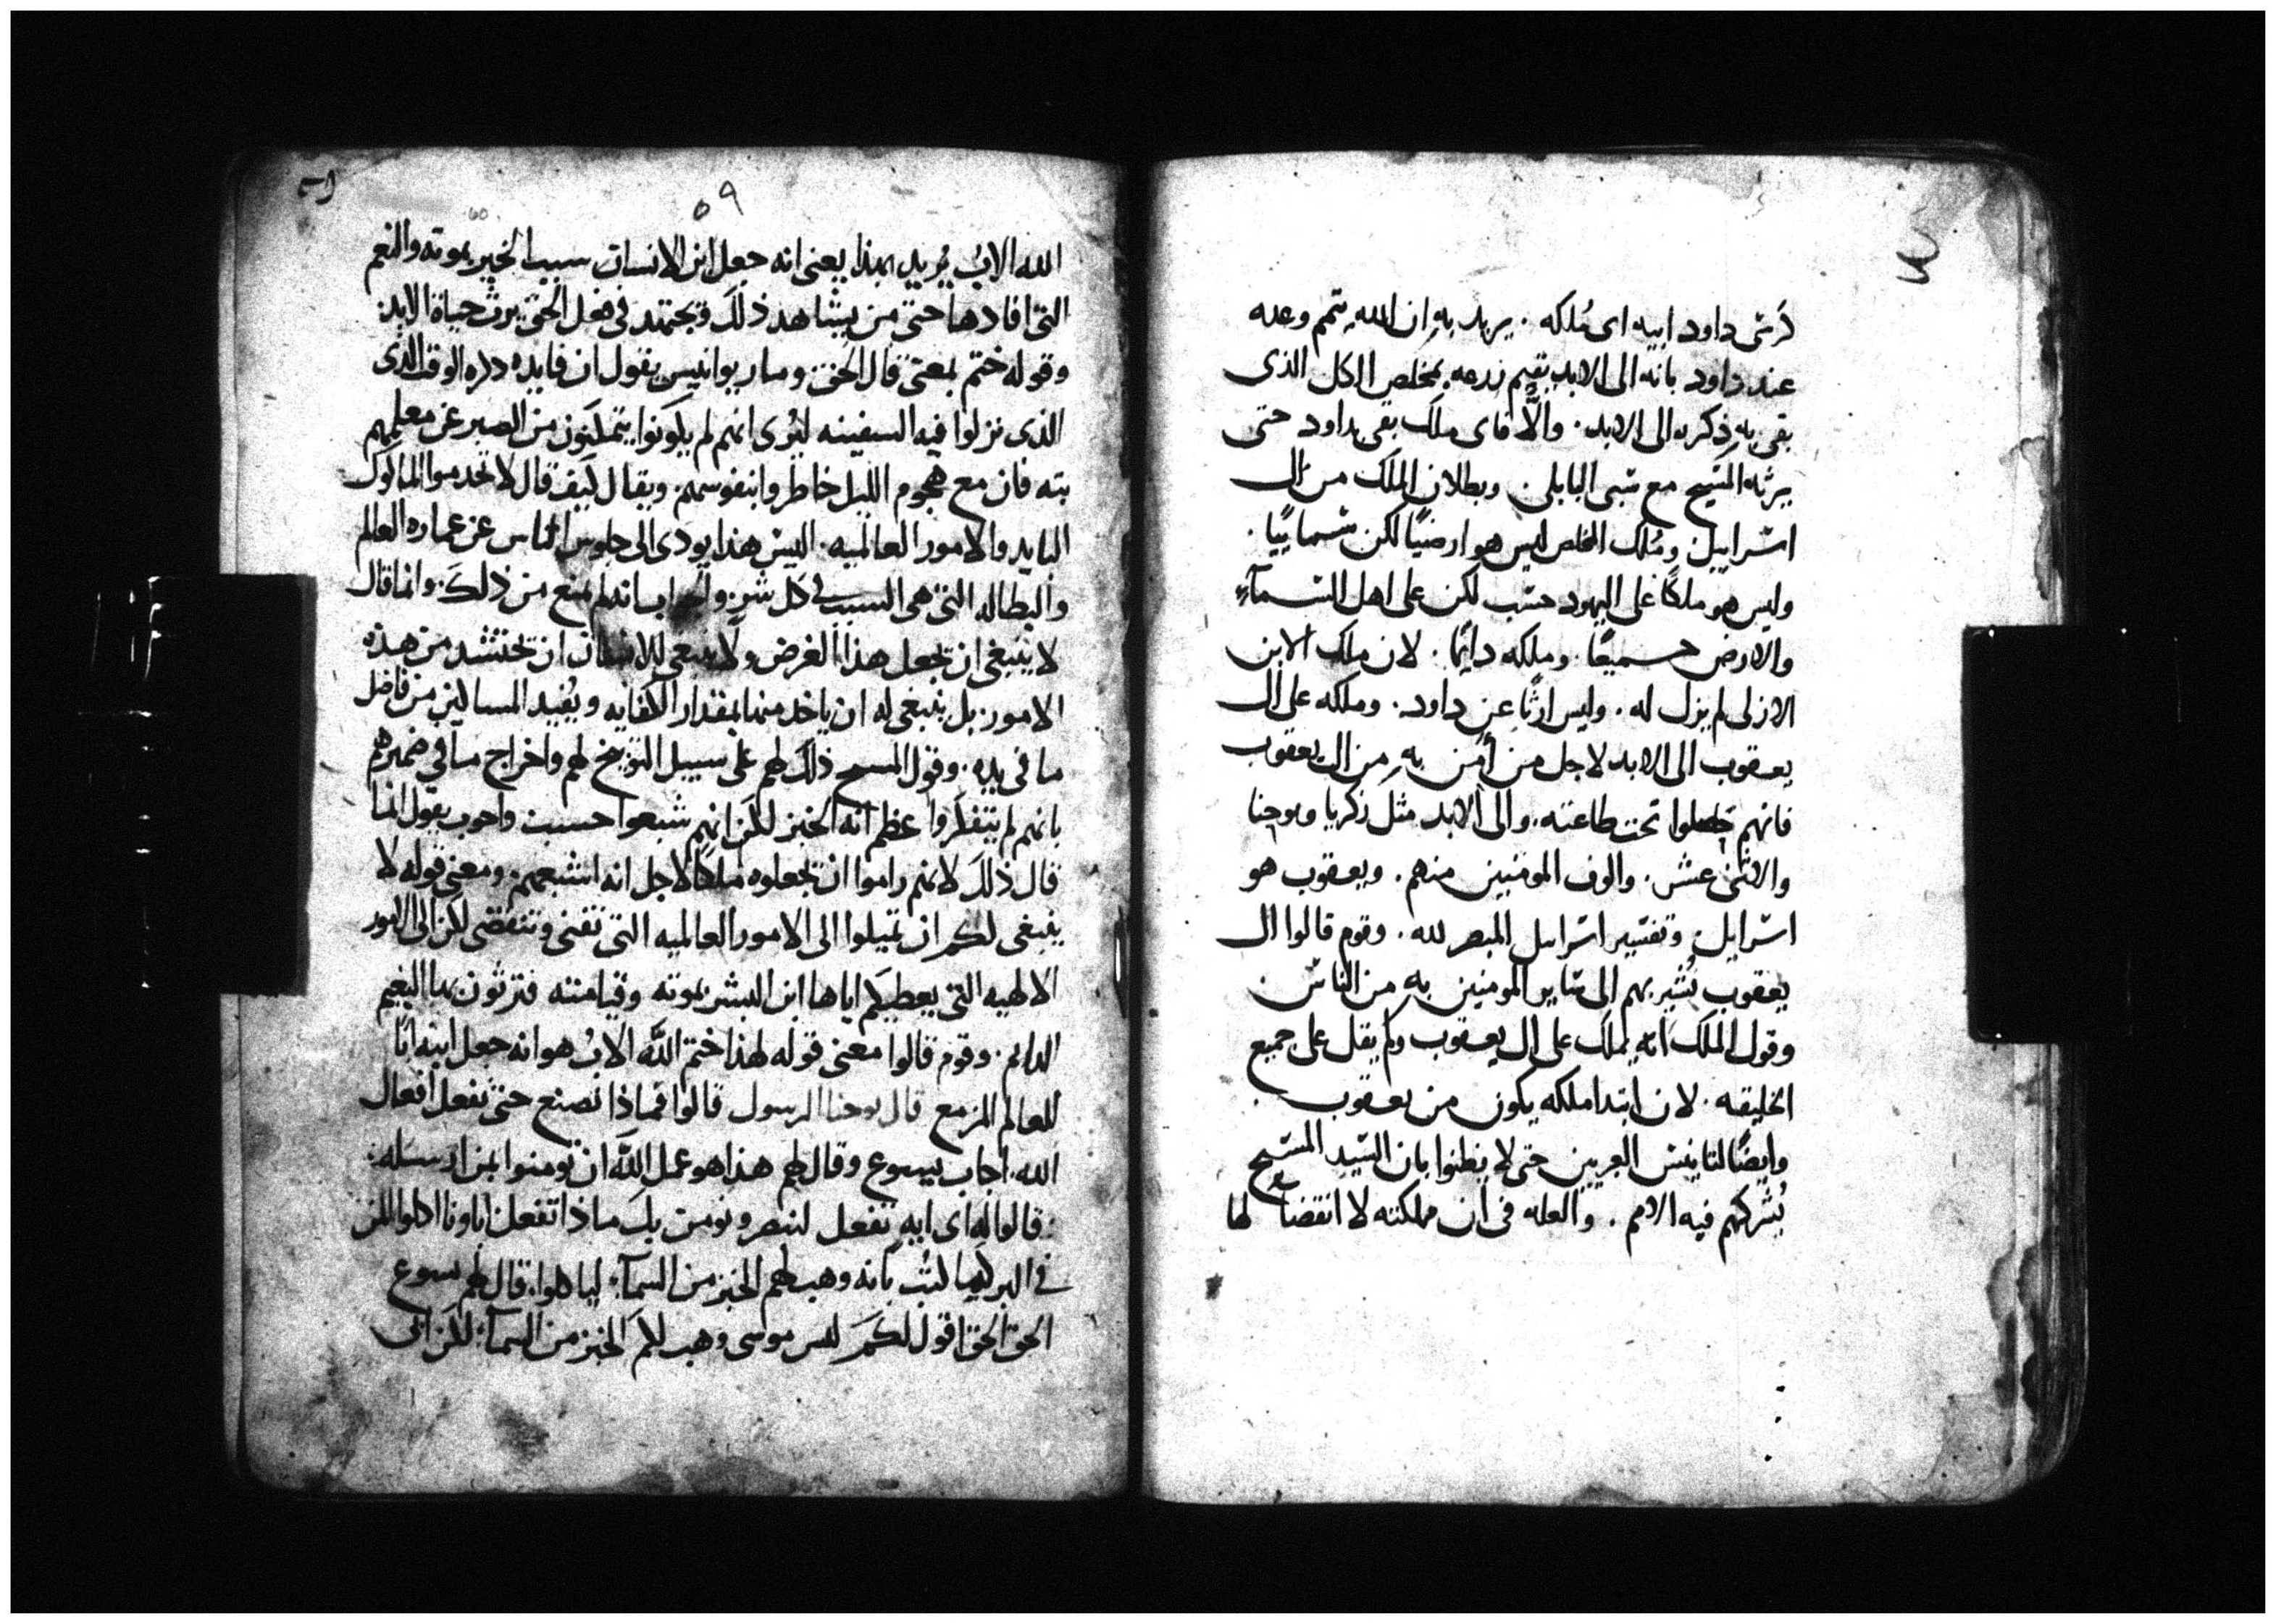 كرسى داود ابيه اى مُلكه . يريد به ان الله يتمم وعده
عند داود بانه الى الابد يقيم زرعه بمخلص الكل الذى
بقى به ذكره الى الابد . والَّا فاى ملك بقى لداود حتى
يرثه المسيح مع سبى البابلى . وبطلان الملك من ال
اسراييل ومُلك المخلص ليس هو ارضيًا لكن سمايًيا .
وليس هو ملكًا على اليهود حسب لكن على اهل السمآء
والارض جميعًا . وملكه دايمًا . لان ملك الابن
الازلى لم يزل له . وليس ارثًا عن داود . وملكه على ال
يعقوب الى الابد لاجل من أمن به من ال يعقوب
فانهم حصلوا تحت طاعته . والى الابد مثل زكريا ويوحنا
والاثنى عشر . والوف المومنين منهم . ويعقوب هو
اسرايل وتفسير اسرايل المبصر لله . وقوم قالوا ال
يعقوب يُشير بهم الى ساير المومنين به من الناس
وقول الملك انه يملك على ال يعقوب ولم يقل على جميع
الخليقه . لان ابتدا ملكه يكون من يعقوب
وايضًا لتانيس العبريين حتى لا يظنوا بان السّيد المسيح
يُشركهم فيه الامم . والعله فى ان مملكته لا انقضا لها
٥٩
60
الله الابُ يُريد بهذا يعنى انه جعل ابن الانسان سببا لخير بموته والنعم
التى افادها حتى من يشاهد ذلك ويجتهد فى فعل الحق يرث حياة الابد
وقوله ختم بمعنى قال الحق ومار يوانيس يقول ان فايده ذكره الوقت الذى
الذى نزلوا فيه السفينه ليُرى انهم لم يكونوا يتمكنون من الصبر عن معلمهم
بته فان مع هجوم الليل خاطروا بنفوسهم . ويقال كيف قال لا تخدموا الماكول
البايد والامور العالميه . اليس هذا يودى الى جلوس الناس عن عماره العالم
والبطاله التى هى السبب فى كل شر . والجواب انه لم يمنع من ذلك . وانما قال
لا ينبغى ان تجعل هذا الغرض ولا ينبغى للانسان ان يحتشد من هذه
الامور . بل ينبغى له ان ياخد منها بمقدار الكفايه ويُفيد المساكين من فاضل
ما فى يده . وقول المسيح ذلك لهم على سبيل التوبيخ لهم واخراج ما فى ضميرهم
بانهم لم يتفكروا عظم اله الخبز لكن انهم شبعوا حسب واحوب يقول انما
قال ذلك لانهم راموا ان يجعلوه ملكا لاجل انه اشبعهم . ومعنى قوله لا
ينبغى لكم ان تميلوا الى الامور العالميه التى تفنى وتنقضى لكن الى الامور
الالهيه التى يعطيكم اياها ابن البشر بموته وقيامته فترثون بها النعيم
الدايم . وقوم قالوا معنى قوله لهذا ختم اللّه الابُ هو انه جعل ابنه ابًا
للعالم المزمع قال يوحنا الرسول قالوا فماذا نصنع حتى نفعل افعال
الله . اجاب يسوع وقال لهم هذا هو عمل اللّه ان تومنوا بمن ارسله :
. قالوا له اى ايه تفعل لنبصر ونومن بك ماذا تفعل اباونا اكلوا المن
فى البر كما كُتب بانه وهب لهم الخبز من السمآء ليا كلوا . قال لهم يسوع
الحق الحق اقول لكم ليس موسى وهب لكم الخبز من السمآء لكن ابى